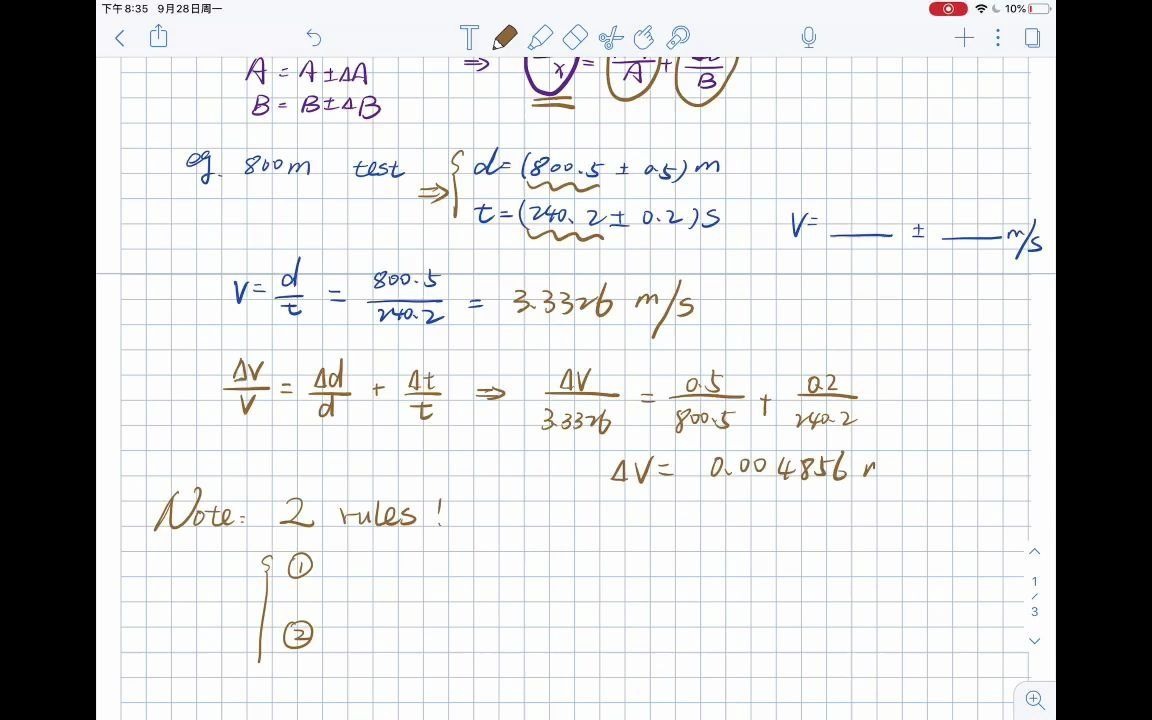 下午8:35 9月28日周一 10%
⇒ x = A + B
A = A ± ΔA
B = B ± ΔB
eg. 800m test ⇒ { d = (800.5 ± 0.5) m
t = (240.2 ± 0.2) s
V = ____ ± ____ m/s
V = d/t = 800.5/240.2 = 3.3326 m/s
ΔV/V = Δd/d + Δt/t ⇒ ΔV/3.3326 = 0.5/800.5 + 0.2/240.2
ΔV = 0.004856 r
Note: 2 rules!
①
②
1
/
3